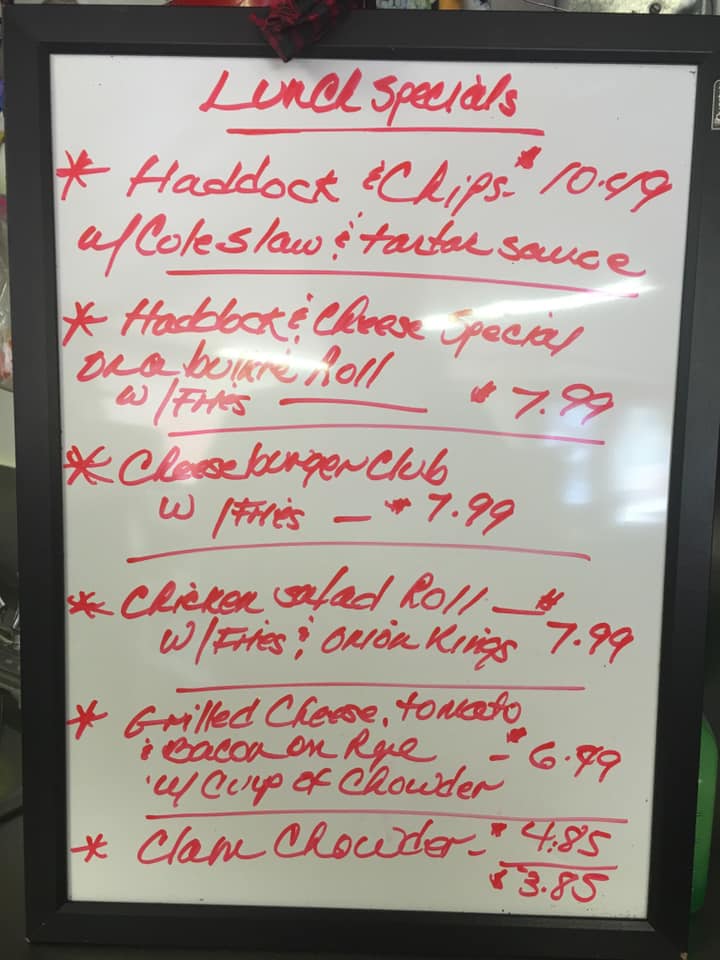 Lunch Specials
* Haddock & Chips - $10.49
w/ Coleslaw & tartar sauce
* Haddock & Cheese Special
on a bulkie Roll
w/Fries — $7.99
* Cheeseburger Club
w/Fries — $7.99
* Chicken salad Roll — $
w/Fries & Onion Rings 7.99
* Grilled Cheese, tomato
& Bacon on Rye - $6.99
w/ Cup of Chowder
* Clam Chowder - $4.85
$3.85